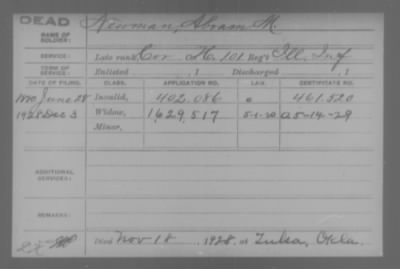 DEAD Newman, Abram M
NAME OF SOLDIER:
SERVICE: Late rank Cor H, 101 Reg't Ill. Inf
TERM OF SERVICE: Enlisted , 1 Discharged , 1
DATE OF FILING. CLASS. APPLICATION NO. LAW. CERTIFICATE NO.
1880 June 28 Invalid, 402.086 461.520
1928 Dec 3 Widow, 1,629,517 5-1-20
Minor,
ADDITIONAL SERVICES:
REMARKS:
Died Nov 18, 1928, at Tulsa, Okla.